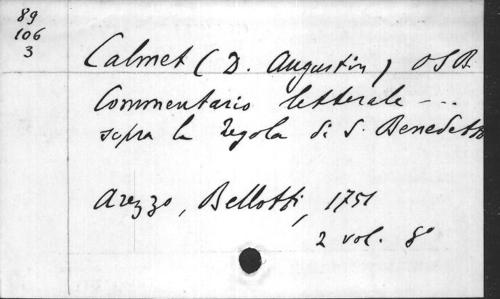 89
106
3
Calmet (D. Augustin) OSB.
Commentario letterale - ...
sopra la regola di S. Benedetto
Arezzo, Bellotti, 1751
2 vol. 8°